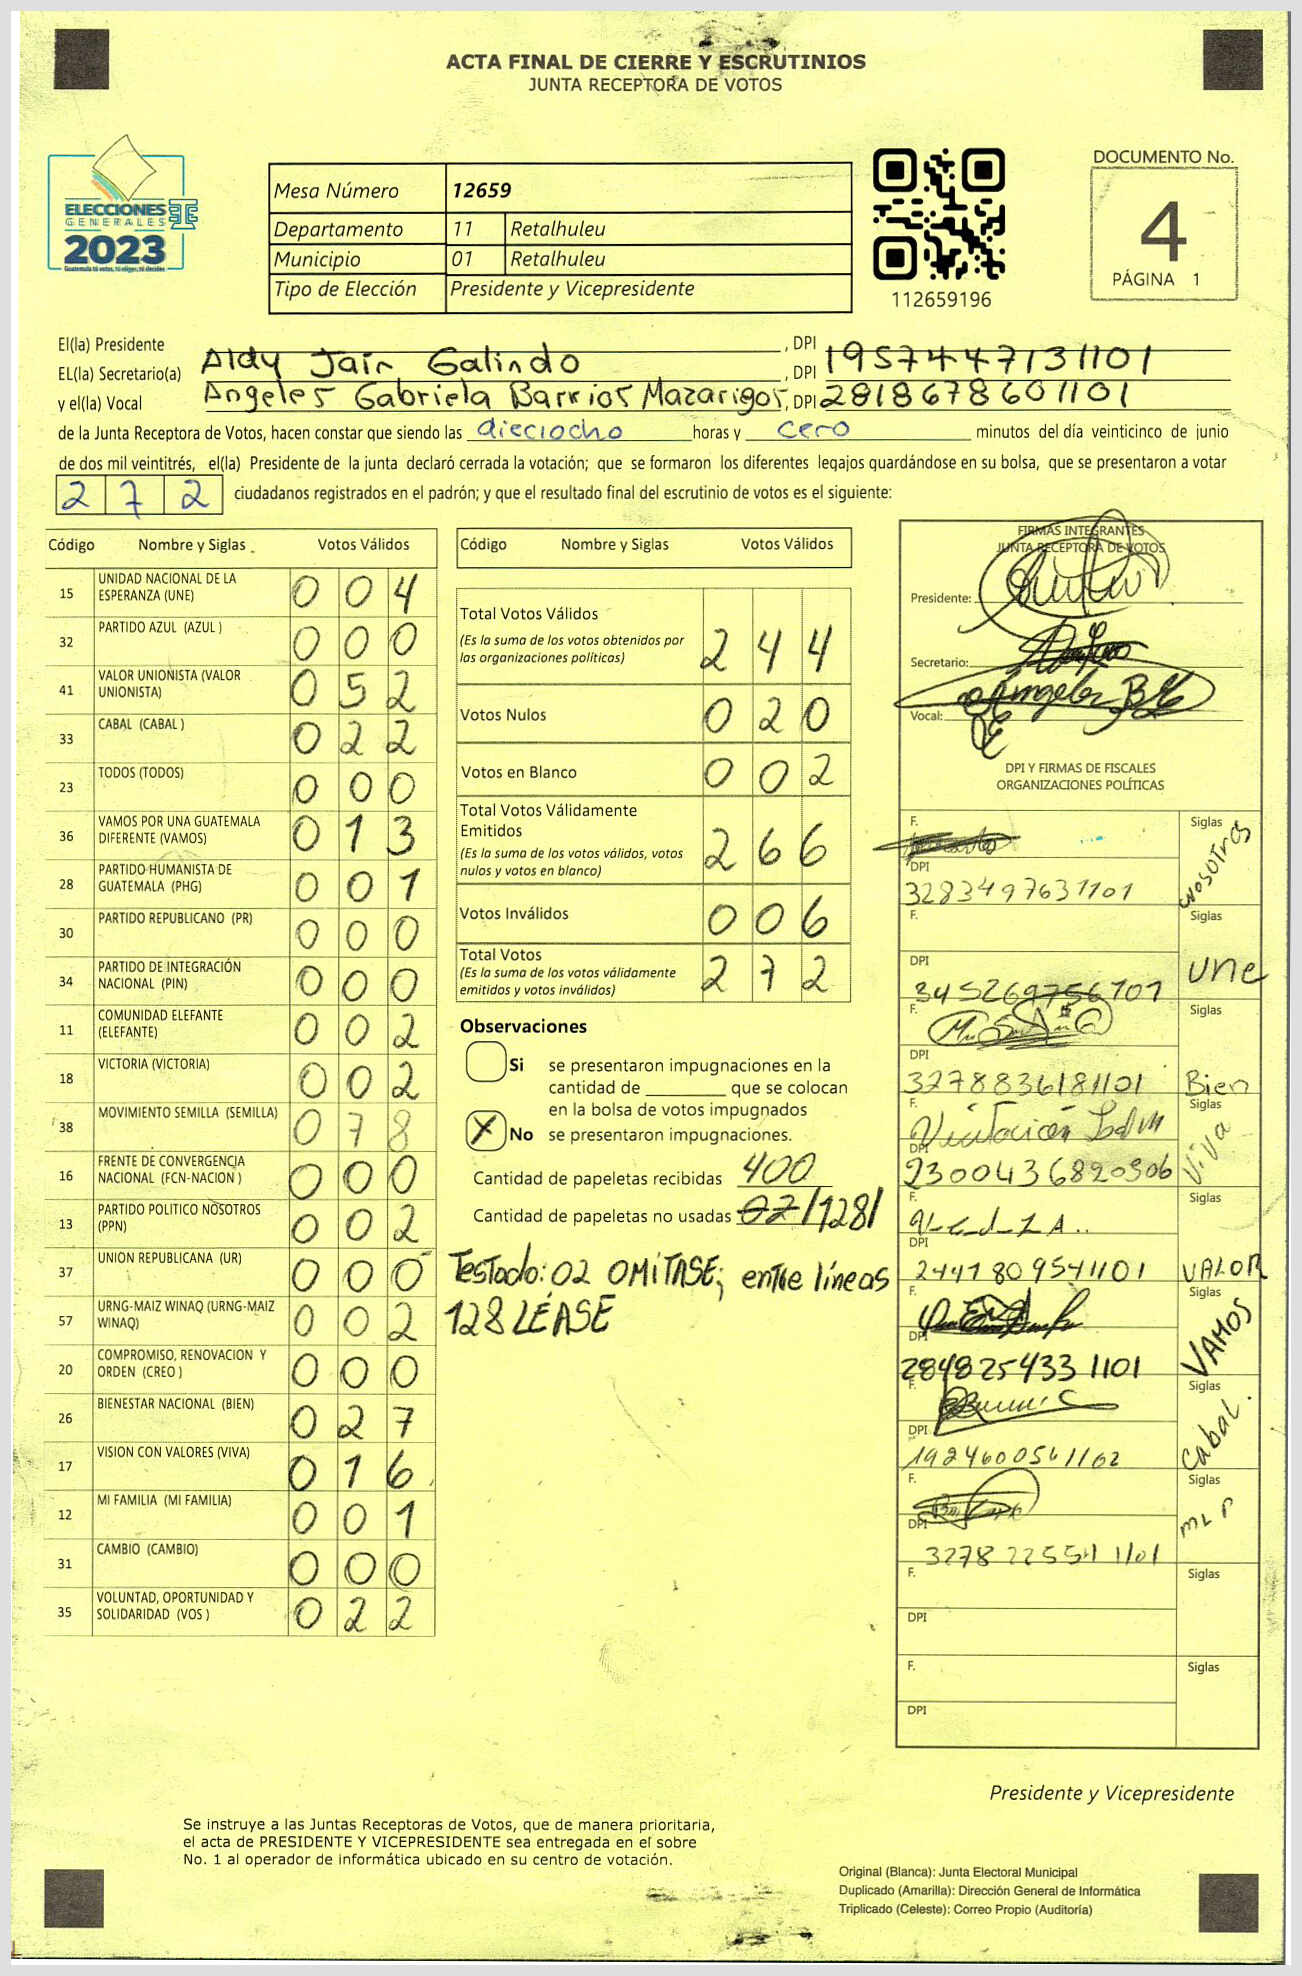 ACTA FINAL DE CIERRE Y ESCRUTINIOS
JUNTA RECEPTORA DE VOTOS
ELECCIONES
GENERALES
2023
Guatemala tú votas, tú eliges, tú decides
Mesa Número 12659
Departamento 11 Retalhuleu
Municipio 01 Retalhuleu
Tipo de Elección Presidente y Vicepresidente
112659196
DOCUMENTO No.
4
PÁGINA 1
El(la) Presidente , DPI
EL(la) Secretario(a) Aldy Jair Galindo , DPI 1957447131101
y el(la) Vocal Angeles Gabriela Barrios Mazarigos, DPI 2818678601101
de la Junta Receptora de Votos, hacen constar que siendo las dieciocho horas y cero minutos del día veinticinco de junio
de dos mil veintitrés, el(la) Presidente de la junta declaró cerrada la votación; que se formaron los diferentes legajos guardándose en su bolsa, que se presentaron a votar
272 ciudadanos registrados en el padrón; y que el resultado final del escrutinio de votos es el siguiente:
Código Nombre y Siglas Votos Válidos
15 UNIDAD NACIONAL DE LA ESPERANZA (UNE) 004
32 PARTIDO AZUL (AZUL ) 000
41 VALOR UNIONISTA (VALOR UNIONISTA) 052
33 CABAL (CABAL ) 022
23 TODOS (TODOS) 000
36 VAMOS POR UNA GUATEMALA DIFERENTE (VAMOS) 013
28 PARTIDO HUMANISTA DE GUATEMALA (PHG) 001
30 PARTIDO REPUBLICANO (PR) 000
34 PARTIDO DE INTEGRACIÓN NACIONAL (PIN) 000
11 COMUNIDAD ELEFANTE (ELEFANTE) 002
18 VICTORIA (VICTORIA) 002
38 MOVIMIENTO SEMILLA (SEMILLA) 078
16 FRENTE DE CONVERGENCIA NACIONAL (FCN-NACION ) 000
13 PARTIDO POLITICO NOSOTROS (PPN) 002
37 UNION REPUBLICANA (UR) 000
57 URNG-MAIZ WINAQ (URNG-MAIZ WINAQ) 002
20 COMPROMISO, RENOVACION Y ORDEN (CREO ) 000
26 BIENESTAR NACIONAL (BIEN) 027
17 VISION CON VALORES (VIVA) 016
12 MI FAMILIA (MI FAMILIA) 001
31 CAMBIO (CAMBIO) 000
35 VOLUNTAD, OPORTUNIDAD Y SOLIDARIDAD (VOS ) 022
Código Nombre y Siglas Votos Válidos
Total Votos Válidos 244
(Es la suma de los votos obtenidos por
las organizaciones políticas)
Votos Nulos 020
Votos en Blanco 002
Total Votos Válidamente
Emitidos 266
(Es la suma de los votos válidos, votos
nulos y votos en blanco)
Votos Inválidos 006
Total Votos 272
(Es la suma de los votos válidamente
emitidos y votos inválidos)
Observaciones
Si se presentaron impugnaciones en la
cantidad de que se colocan
en la bolsa de votos impugnados
X No se presentaron impugnaciones.
Cantidad de papeletas recibidas 400
Cantidad de papeletas no usadas 02/128/
Testado: 02 OMITASE; entre líneas
128 LÉASE
FIRMAS INTEGRANTES
JUNTA RECEPTORA DE VOTOS
Presidente:
Secretario:
Vocal: Angeles
DPI Y FIRMAS DE FISCALES
ORGANIZACIONES POLÍTICAS
F. Siglas NOSOTROS
DPI 3283497631101
F. Siglas une
DPI
F. Siglas Bien
DPI 3278836181101
F. Siglas Viva
DPI 2300436820906
F. Siglas VALOR
DPI 2447809541101
F. Siglas VAMOS
DPI 2848254331101
F. Siglas Cabal.
DPI 1924600561102
F. Siglas MLP
DPI
F. Siglas
DPI
F. Siglas
DPI
Presidente y Vicepresidente
Se instruye a las Juntas Receptoras de Votos, que de manera prioritaria,
el acta de PRESIDENTE Y VICEPRESIDENTE sea entregada en el sobre
No. 1 al operador de informática ubicado en su centro de votación.
Original (Blanca): Junta Electoral Municipal
Duplicado (Amarilla): Dirección General de Informática
Triplicado (Celeste): Correo Propio (Auditoría)